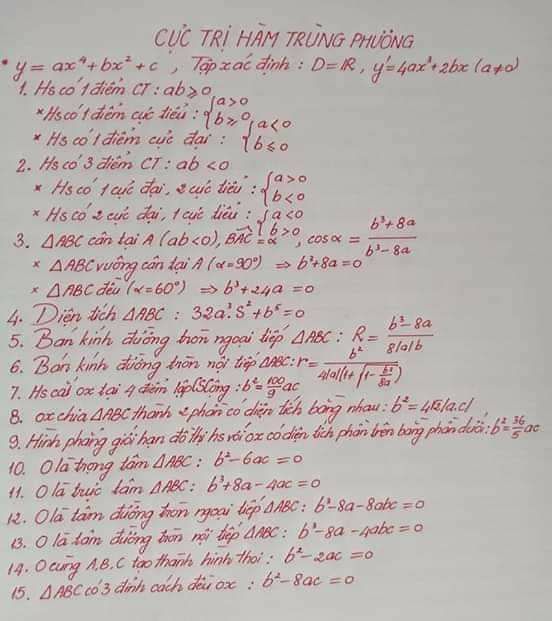 CỰC TRỊ HÀM TRÙNG PHƯƠNG
* y = ax⁴ + bx² + c , Tập xác định : D = R , y' = 4ax³ + 2bx (a ≠ 0)
1. Hs có 1 điểm CT : ab ≥ 0
* Hs có 1 điểm cực tiểu : { a > 0 b ≥ 0
* Hs có 1 điểm cực đại : { a < 0 b ≤ 0
2. Hs có 3 điểm CT : ab < 0
* Hs có 1 cực đại, 2 cực tiểu : { a > 0 b < 0
* Hs có 2 cực đại, 1 cực tiểu : { a < 0 b > 0
3. ΔABC cân tại A (ab < 0), BAC = α , cos α = (b³ + 8a)/(b³ - 8a)
* ΔABC vuông cân tại A (α = 90°) ⇒ b³ + 8a = 0
* ΔABC đều (α = 60°) ⇒ b³ + 24a = 0
4. Diện tích ΔABC : 32a³.S² + b⁵ = 0
5. Bán kính đường tròn ngoại tiếp ΔABC : R = (b³ - 8a)/(8|a|b)
6. Bán kính đường tròn nội tiếp ΔABC : r = b²/(4|a|(1 + √(1 - b³/8a)))
7. Hs cắt ox tại 4 điểm lập CSCộng : b² = 100/9 ac
8. ox chia ΔABC thành 2 phần có diện tích bằng nhau : b² = 4√2|a.c|
9. Hình phẳng giới hạn đồ thị hs với ox có diện tích phần trên bằng phần dưới : b² = 36/5 ac
10. O là trọng tâm ΔABC : b² - 6ac = 0
11. O là trực tâm ΔABC : b³ + 8a - 4ac = 0
12. O là tâm đường tròn ngoại tiếp ΔABC : b³ - 8a - 8abc = 0
13. O là tâm đường tròn nội tiếp ΔABC : b³ - 8a - 4abc = 0
14. O cùng A, B, C tạo thành hình thoi : b² - 2ac = 0
15. ΔABC có 3 đỉnh cách đều ox : b² - 8ac = 0